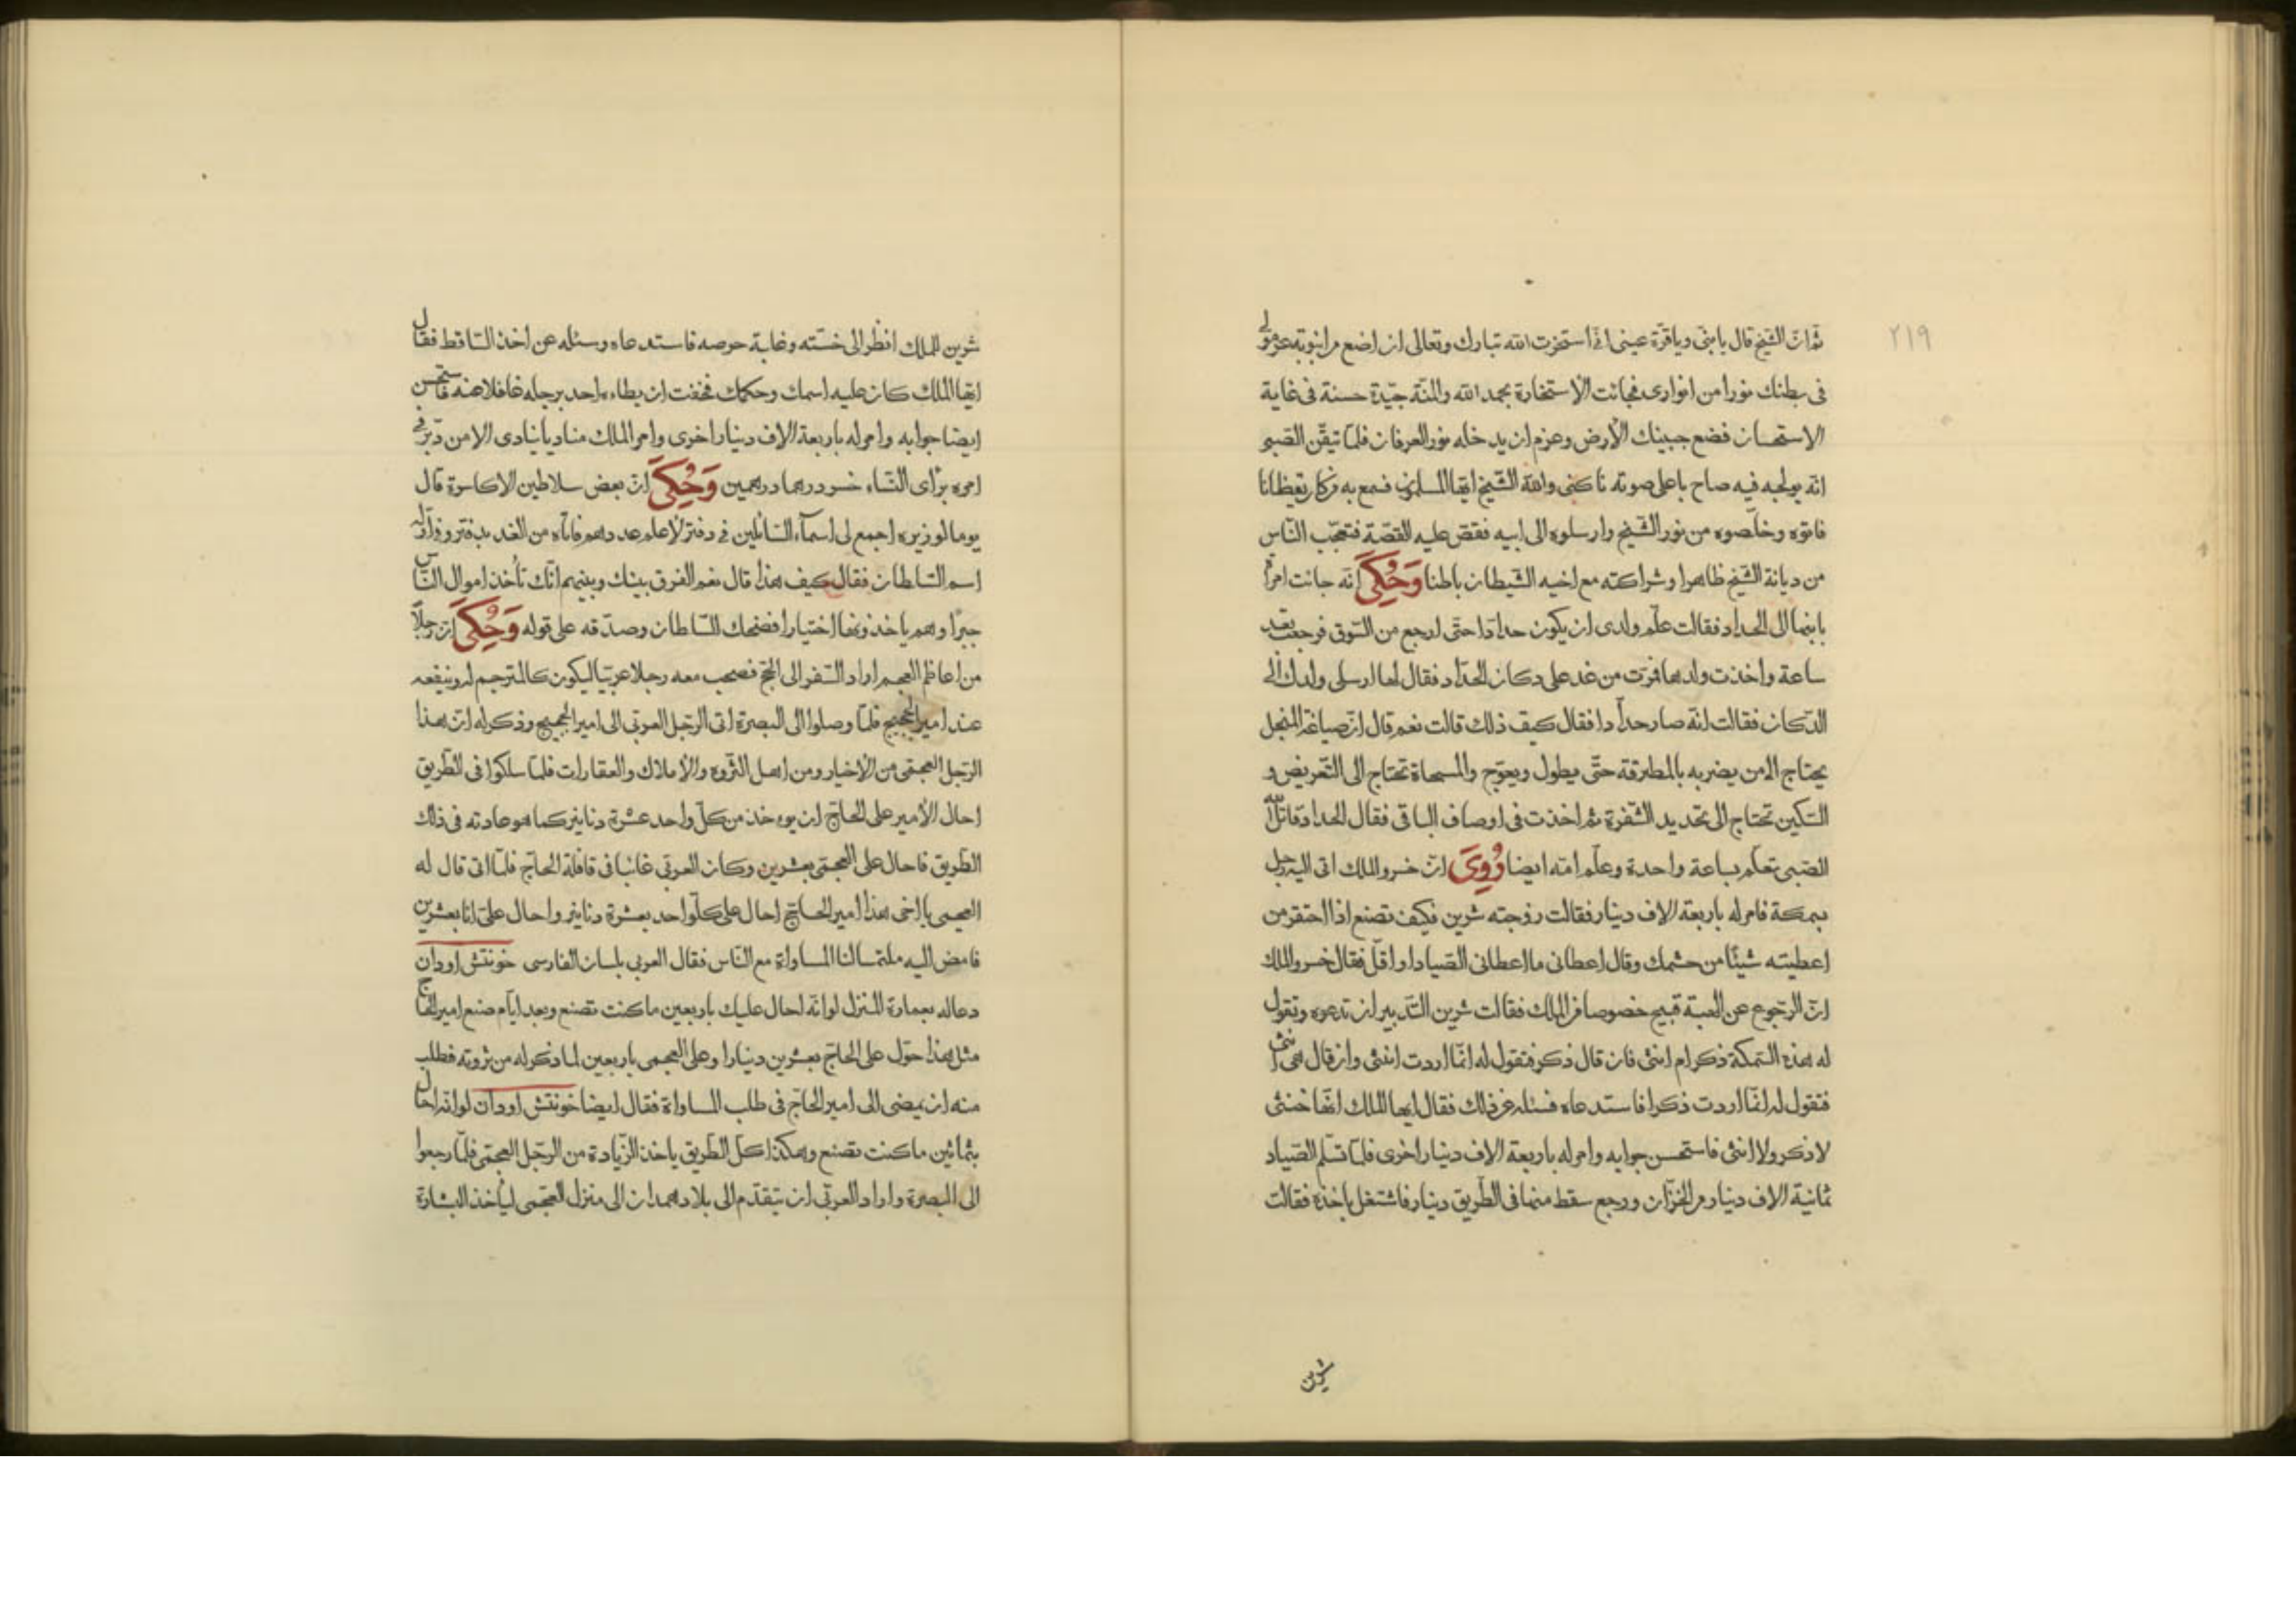 ٢١٩
ثم ان الشيخ قال يا بنى ويا قرة عينى انى استخرت الله تبارك وتعالى ان اضع من انبوبة عرموى
فى بطنك نورا من انوارى فجائت الاستخارة بحمد الله والمنة جيدة حسنة فى غاية
الاستحسان فضع جبينك الأرض وعزم ان يدخله نور العرفان فلما تيقن الصبى
انه يولجه فيه صاح باعلى صوته ناكنى والله الشيخ ايها المسلمون فسمع به من كان
فاتوه وخلصوه من نور الشيخ وارسلوه الى ابيه فقص عليه القصة فتعجب الناس
من ديانة الشيخ ظاهرا وشراكته مع اخيه الشيطان باطنا وَحُكِىَ انه جائت امراة
بابنها الى الحداد فقالت علم ولدى ان يكون حدادا حتى ارجع من السوق فرجعت بعد
ساعة واخذت ولدها فمرت من غد على دكان الحداد فقال لها ارسلى ولدك الى
الدكان فقالت انه صار حدادا فقال كيف ذلك قالت نعم قال ان صياغة المنجل
يحتاج الا من يضربه بالمطرقة حتى يطول ويعوج والمسحاة تحتاج الى التعريض و
السكين تحتاج الى تحديد الشفرة ثم اخذت فى اوصاف الباقى فقال الحداد قاتل الله
الصبى تعلم بساعة واحدة وعلم امه ايضا رُوِىَ ان خسرو الملك اتى اليه رجل
بسمكة فامر له باربعة الاف دينار فقالت زوجته شرين فكيف تصنع اذا احتقر من
اعطيته شيئا من حشمك وقال اعطانى ما اعطانى الصياد او اقل فقال خسرو الملك
ان الرجوع عن الهبة قبيح خصوصا من الملك فقالت شرين التدبير ان تدعوه وتقول
له هذه السمكة ذكر ام انثى فان قال ذكر فتقول له انما اردت انثى وان قال هى انثى
فتقول له انما اردت ذكرا فاستدعاه فسئله عن ذلك فقال ايها الملك انها خنثى
لا ذكر ولا انثى فاستحسن جوابه وامر له باربعة الاف دينار اخرى فلما تسلم الصياد
ثمانية الاف دينار من الخزان ورجع سقط منها فى الطريق دينار فاشتغل باخذه فقالت
شرين
شرين للملك انظر الى خسته وغاية حرصه فاستدعاه وسئله عن اخذ الساقط فقال
ايها الملك كان عليه اسمك وحكمك فخفت ان يطاءه احد برجله غافلا عنه فاستحسن
ايضا جوابه وامر له باربعة الاف دينار اخرى وامر الملك مناديا ينادى الا من دبر فى
امره براى النساء خسر درهما درهمين وَحُكِىَ ان بعض سلاطين الاكاسرة قال
يوما لوزيره اجمع لى اسماء السائلين فى دفتر لاعلم عددهم فاتاه من الغد بدفتر وفى اوله
اسم السلطان فقال كيف هذا قال نعم الفرق بينك وبينهم انك تأخذ اموال الناس
جبرا وهم ياخذونها اختيارا فضحك السلطان وصدقه على قوله وَحُكِىَ ان رجلا
من اعاظم العجم اراد السفر الى الحج فصحب معه رجلا عربيا ليكون كالمترجم له وينفعه
عند امير الحجيج فلما وصلوا الى البصرة اتى الرجل العربى الى امير الحجيج وذكر له ان هذا
الرجل العجمى من الأخيار ومن اهل الثروه والأملاك والعقارات فلما سلكوا فى الطريق
احال الأمير على الحاج ان يوءخذ من كل واحد عشرة دنانير كما هو عادته فى ذلك
الطريق فاحال على العجمى بعشرين وكان العربى غائبا فى قافلة الحاج فلما اتى قال له
العجمى يا اخى هذا امير الحاج احال على كل واحد بعشرة دنانير واحال على انا بعشرين
فامض اليه ملتمسا لنا المساواة مع الناس فقال العربى بلسان الفارسى خونتش اودان
دعا له بعمارة المنزل لو انه احال عليك باربعين ما كنت تصنع وبعد ايام صنع امير الحاج
مثل هذا حول على الحاج بعشرين دينارا وعلى العجمى باربعين لما ذكر له من ثروته فطلب
منه ان يمضى الى امير الحاج فى طلب المساواة فقال ايضا خونتش اودان لو انه احال
بثمانين ما كنت تصنع وهكذا كل الطريق ياخذ الزيادة من الرجل العجمى فلما رجعوا
الى البصرة واراد العربى ان يتقدم الى بلاد همدان الى منزل العجمى لياخذ البشارة